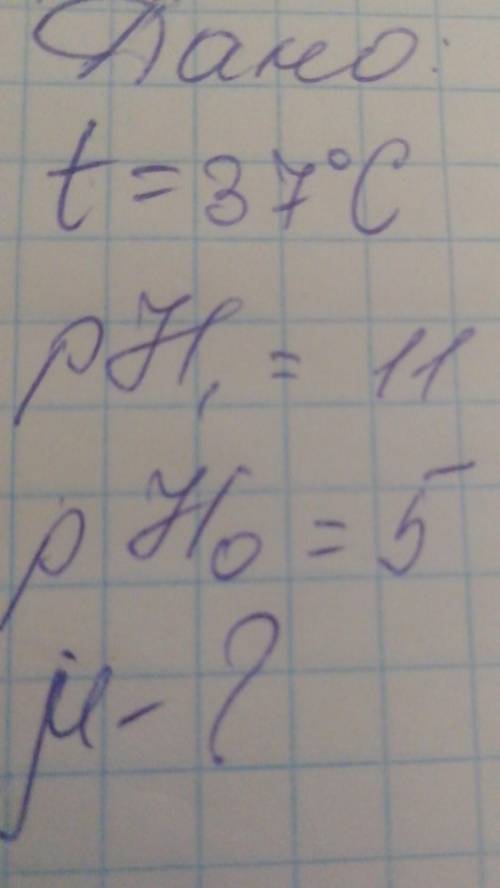 Дано:
t = 37°C
pH₁ = 11
pH₀ = 5
μ - ?